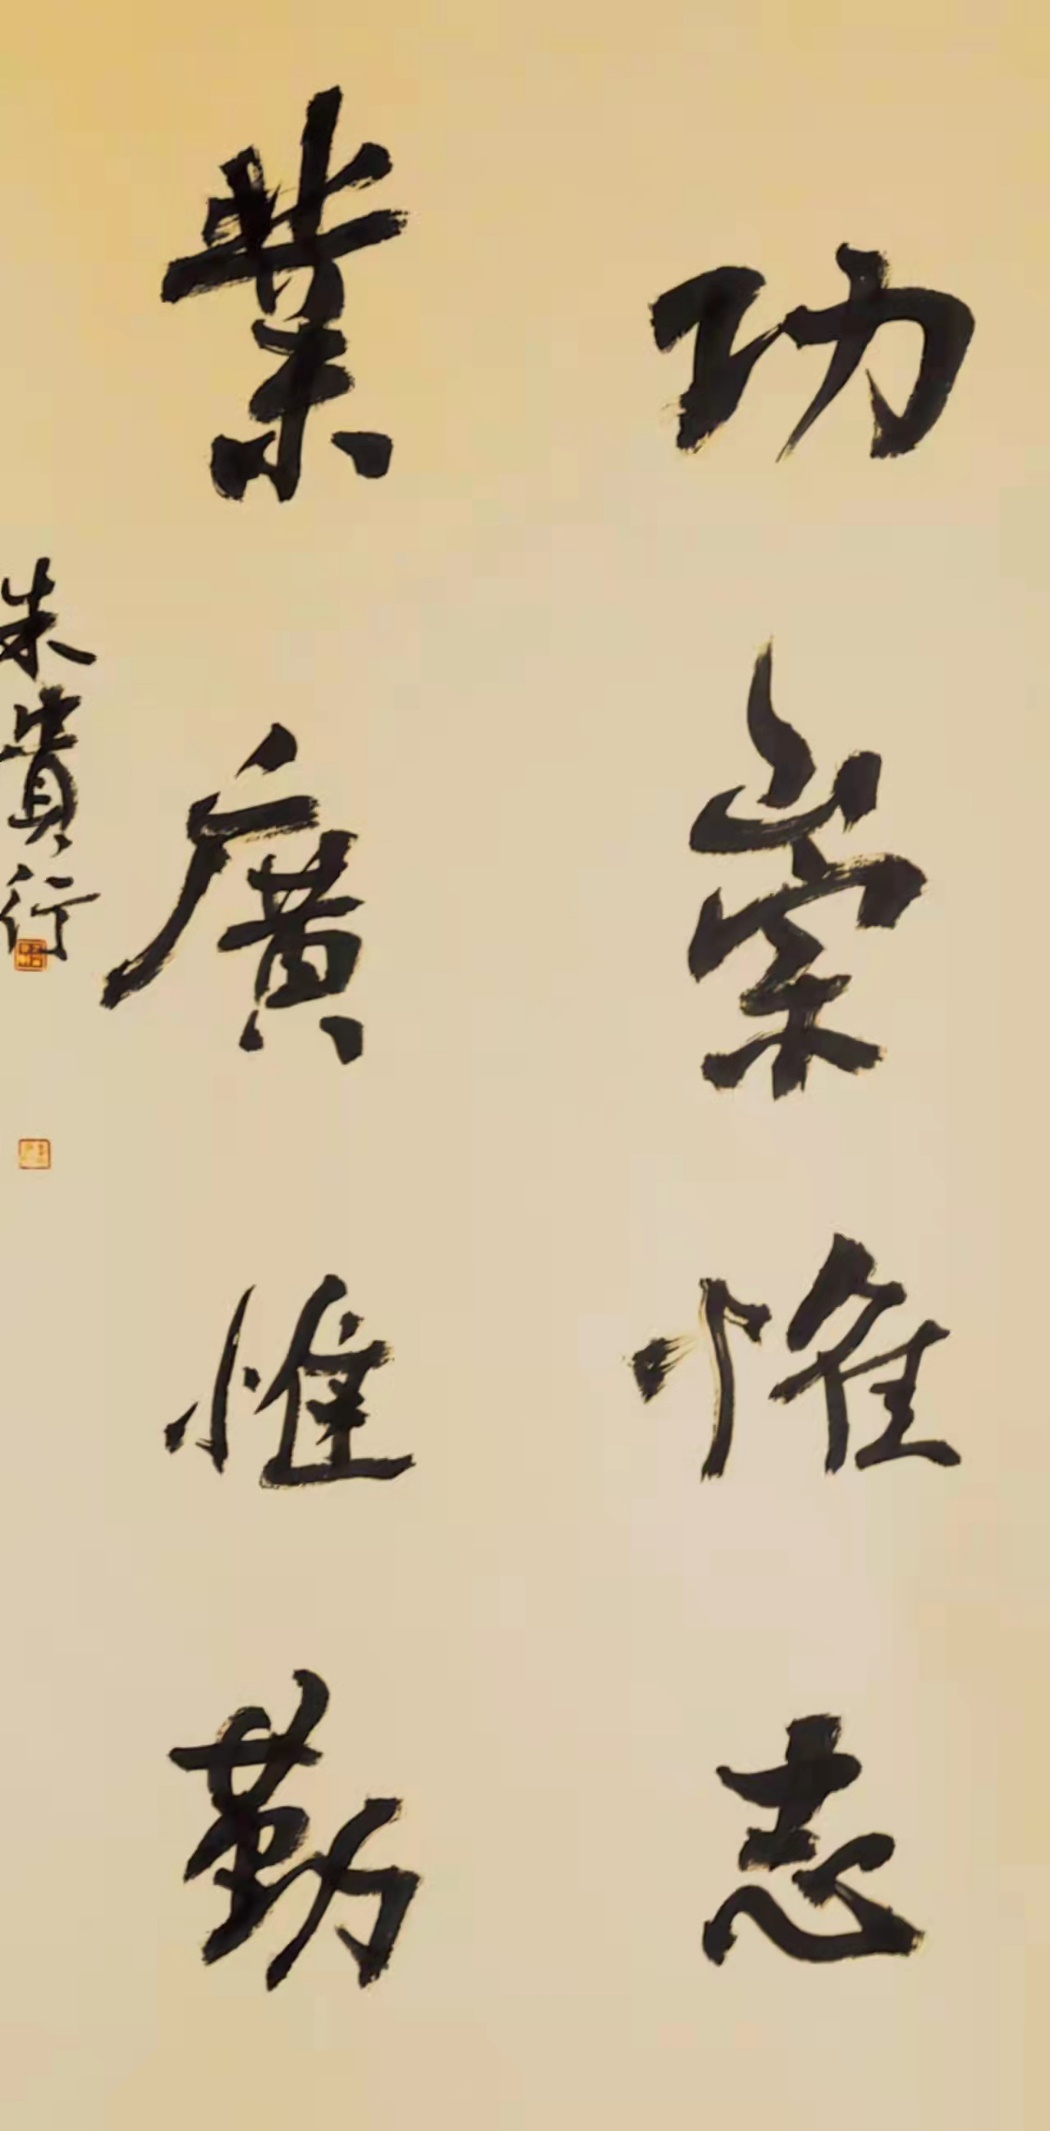 功崇惟志
業廣惟勤
朱貴行